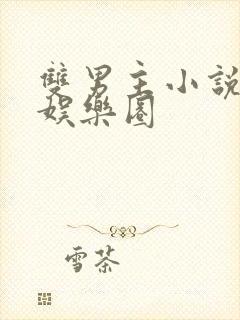 雙男主小說
娛樂圈
雪茶